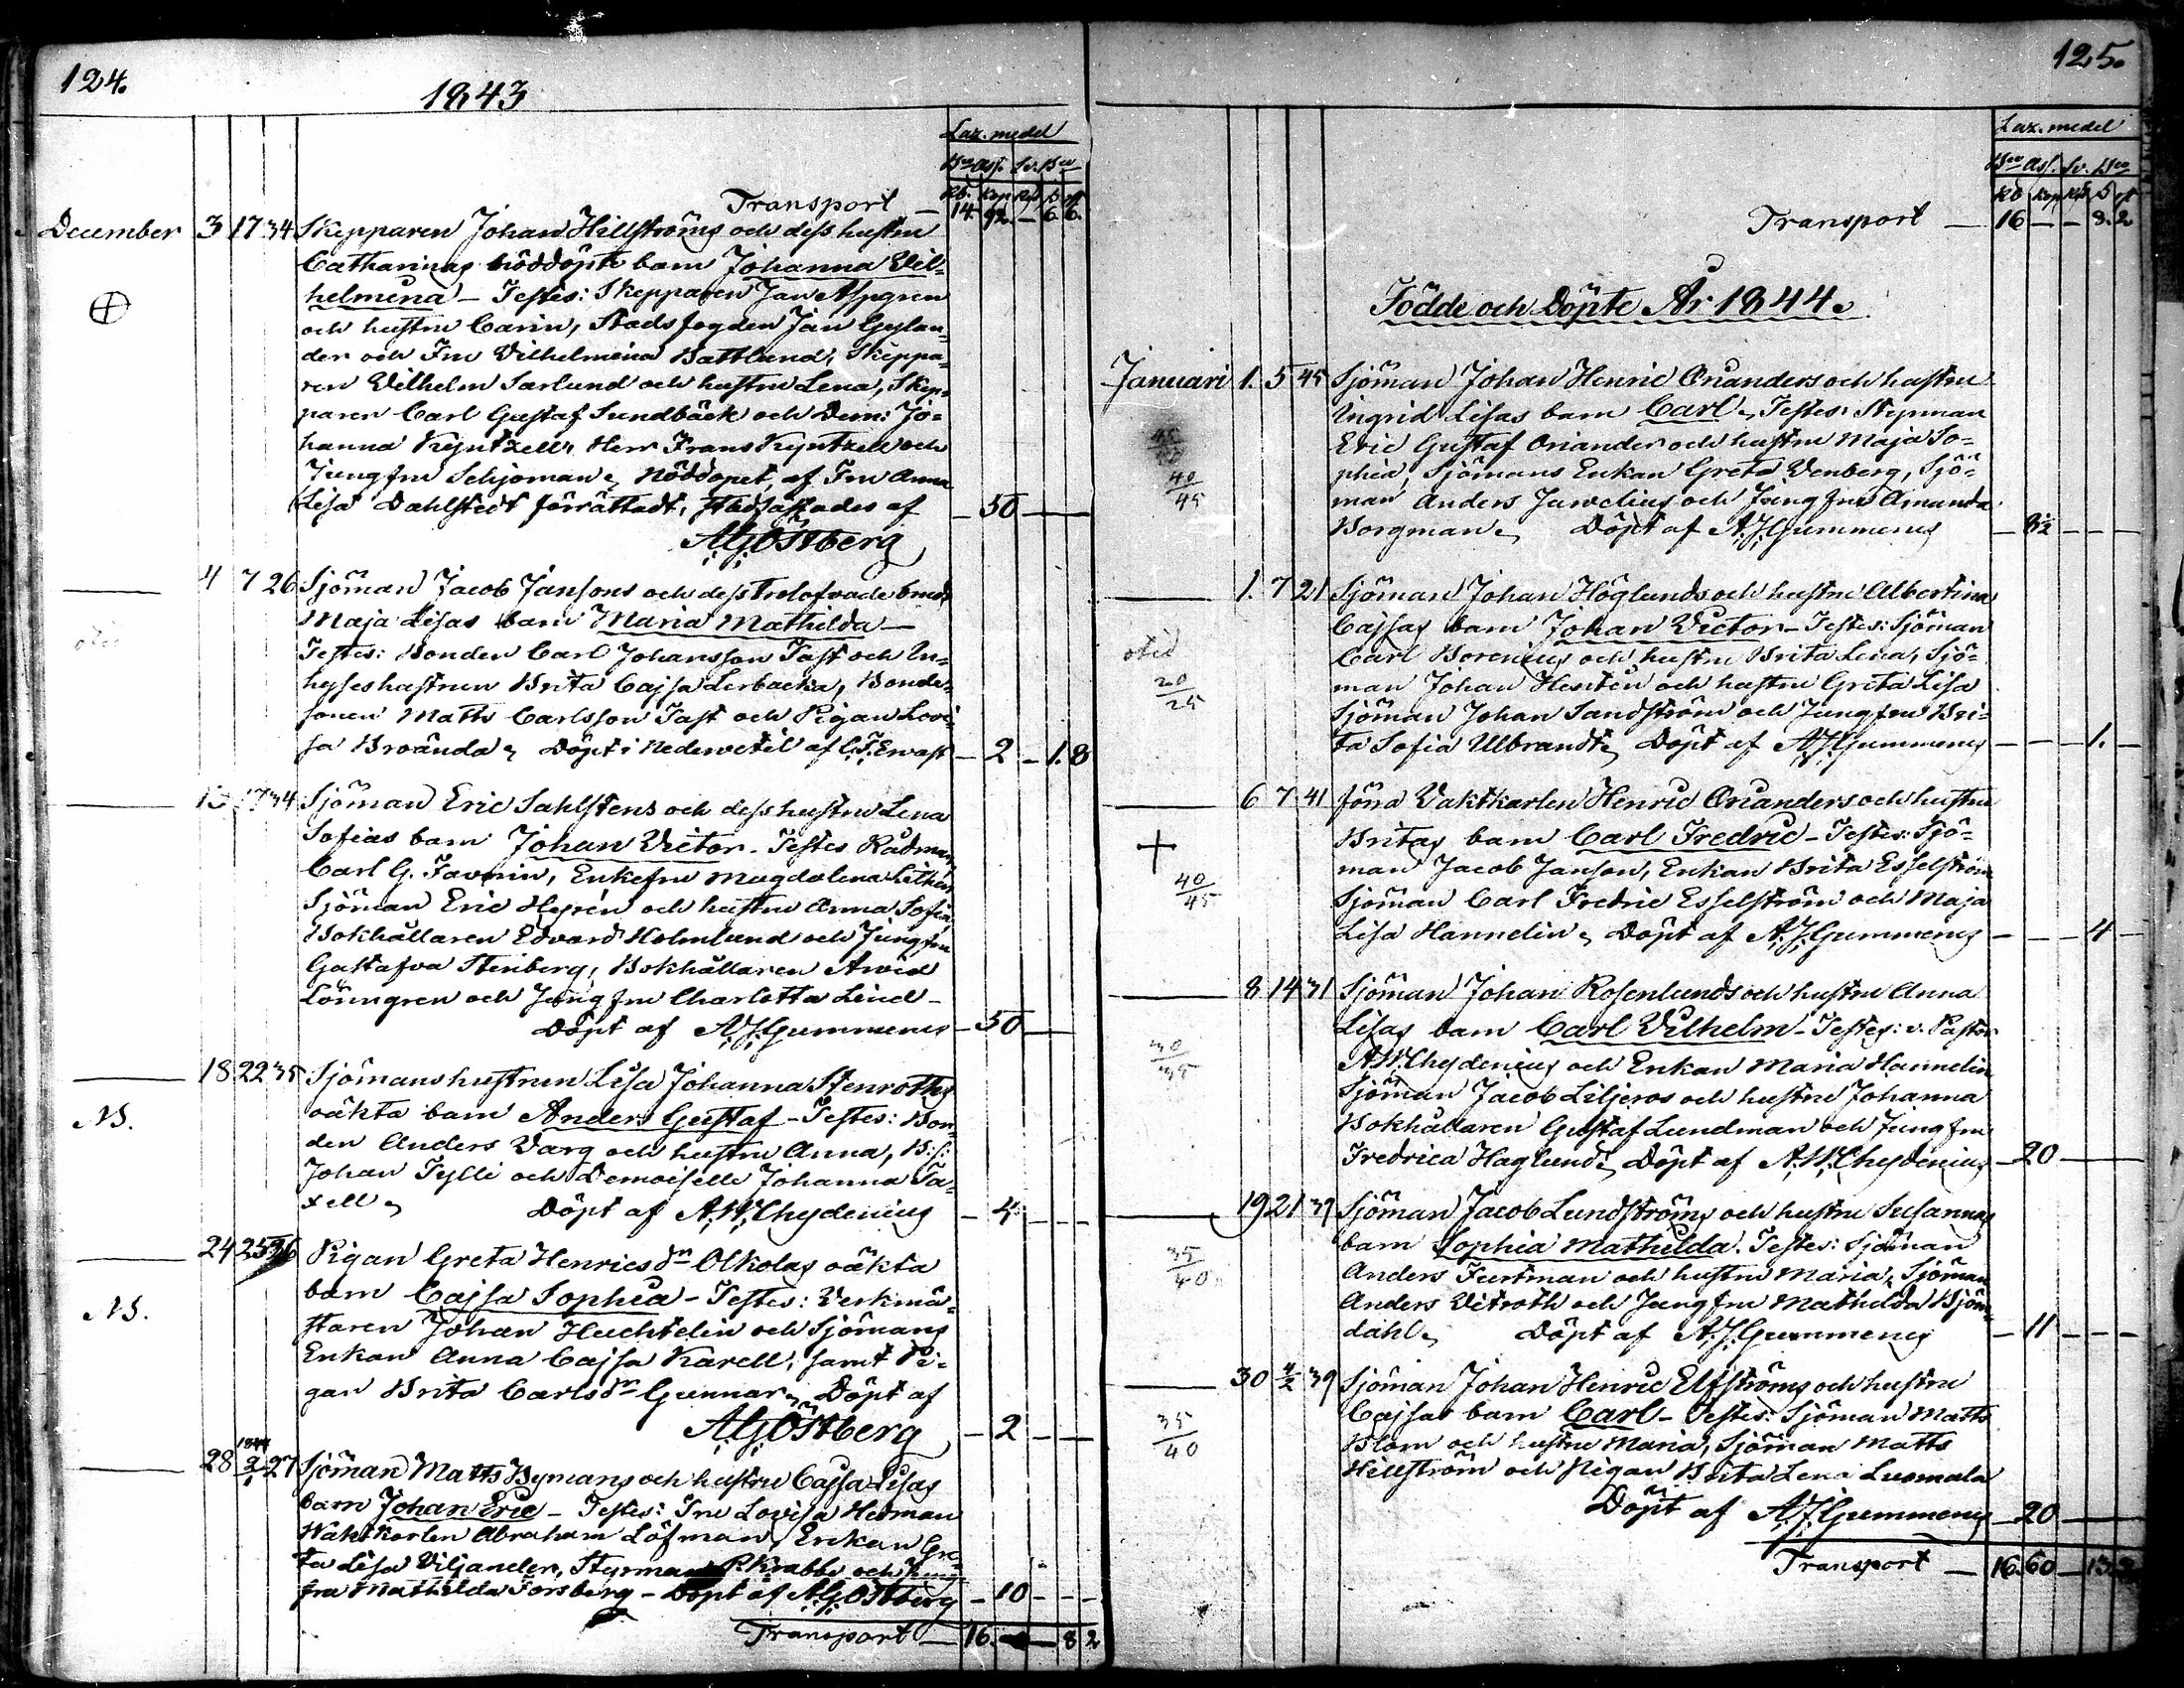 124.
1843
Laz. medel
Bco Ass. Sv. Bco
Rb. kop Rd s. rst
Transport — 14 92. — 6. 6.
December 3 17 34 Skepparen Johan Hillströms och dess hustru
Catharinas nöddöpta barn Johanna Vil-
helmina — Testes: Skepparen Jan Aspgren
och hustru Carin, Stads fogden Jan Gylan-
der och Fru Vilhelmina Battlund, Skeppa-
ren Vilhelm Sarlund och hustru Lena, Skep-
paren Carl Gustaf Sundbäck och Dem: Jo-
hanna Kyntzell, Herr Frans Kyntzell och
Jungfru Schjoman, Nöddopet, af Fru Anna
Lisa Dahlstedt förrättadt, stadfästades af — 50 —
A.G. Östberg
4 7 26 Sjöman Jacob Jansons och dess trolofvade bruds
Maja Lisas barn Maria Mathilda —
Testes: Bonden Carl Johansson Tast och In-
hyseshustrun Brita Cajsa Lerbacka, Bonde-
sonen Matts Carlsson Tast och Pigan Lovi-
sa Broända, Döpt i Nedervetil af C.F. Ervast — 2 — 1. 8
17 34 Sjöman Eric Sahlstens och dess hustru Lena
Sofias barn Johan Victor. Testes Rådman
Carl G. Favorin, Enkefru Magdalena Lithén
Sjöman Eric Hegrén och hustru Anna Sofia,
Bokhållaren Edvard Holmlund och Jungfru
Gustafva Stenberg, Bokhållaren Arvid
Lönngren och Jungfru Charlotta Lind —
Döpt af A.J. Gummerus — 50 —
18 22 35 Sjömanshustrun Lisa Johanna Stenroths
oäkta barn Anders Gustaf — Testes: Bon-
N.S. den Anders Varg och hustru Anna, B.s.
Johan Tylli och Demoiselle Johanna Ta-
xell, Döpt af A.W. Chydenius — 4 — —
24 25 26 Pigan Greta Henricsdr Olkolas oäkta
barn Cajsa Sophia — Testes: Verkmä-
N.S. staren Johan Huchtelin och Sjömans
Enkan Anna Cajsa Karell, samt Pi-
gan Brita Carlsdr Gunnar, Döpt af
A.G. Östberg — 2 — —
1844
28 2/1 27 Sjöman Matts Bymans och hustru Cajsa Lisas
barn Johan Eric — Testes: Fru Lovisa Hedman
Waktkarlen Abraham Löfman, Enkan Gre-
ta Lisa Viljander, Styrman P. Krabbe och Jung-
fru Mathilda Forsberg — Döpt af A.G. Östberg — 10 — —
Transport — 16. — — 8 2
125.
Laz. medel
Bco Ass. Sv. Bco
Rb kop Rd s rst
Transport — 16 — — 8. 2
Födde och Döpte År 1844.
Januari 1. 5 45 Sjöman Johan Henric Orianders och hustru
Ingrid Lisas barn Carl, Testes: Styrman
Eric Gustaf Oriander och hustru Maja So-
40/45 phia, Sjömans Enkan Greta Venberg, Sjö-
man Anders Juvelius och Jungfru Amanda
Borgman, Döpt af A.J. Gummerus — 8½ — —
1. 7 21 Sjöman Johan Höglunds och hustru Albertina
Cajsas barn Johan Victor — Testes: Sjöman
otid Carl Borenius och hustru Brita Lena, Sjö-
20/25 man Johan Hentén och hustru Greta Lisa
Sjöman Johan Sandström och Jungfru Bri-
ta Sofia Ulbrandt, Döpt af A.J. Gummerus — — — 1. —
6 7 41 förra Vaktkarlen Henric Orianders och hustru
+ Britas barn Carl Fredric — Testes: Sjö-
40/45 man Jacob Janson, Enkan Brita Esselström
Sjöman Carl Fredric Esselström och Maja
Lisa Hannelin, Döpt af A.J. Gummerus — — — 4 —
8 14 31 Sjöman Johan Rosenlunds och hustru Anna
Lisas barn Carl Vilhelm — Testes: v. Pastor
30/35 A.W. Chydenius och Enkan Maria Hannelin
Sjöman Jacob Liljeros och hustru Johanna
Bokhållaren Gustaf Lundman och Jungfru
Fredrica Haglund, Döpt af A.W. Chydenius — 20 —
19 21 39 Sjöman Jacob Lundströms och hustru Susannas
barn Sophia Mathilda. Testes: Sjöman
35/40 Anders Furtman och hustru Maria, Sjöman
Anders Vitroth och Jungfru Mathilda Björn-
dahl, Döpt af A.J. Gummerus — 11 — —
30 4/2 39 Sjöman Johan Henric Elfströms och hustru
Cajsas barn Carl — Testes: Sjöman Matts
35/40 Blom och hustru Maria, Sjöman Matts
Hillström och Pigan Brita Lena Luomala
Döpt af A.J. Gummerus — 20 —
Transport — 16. 60 — 13.